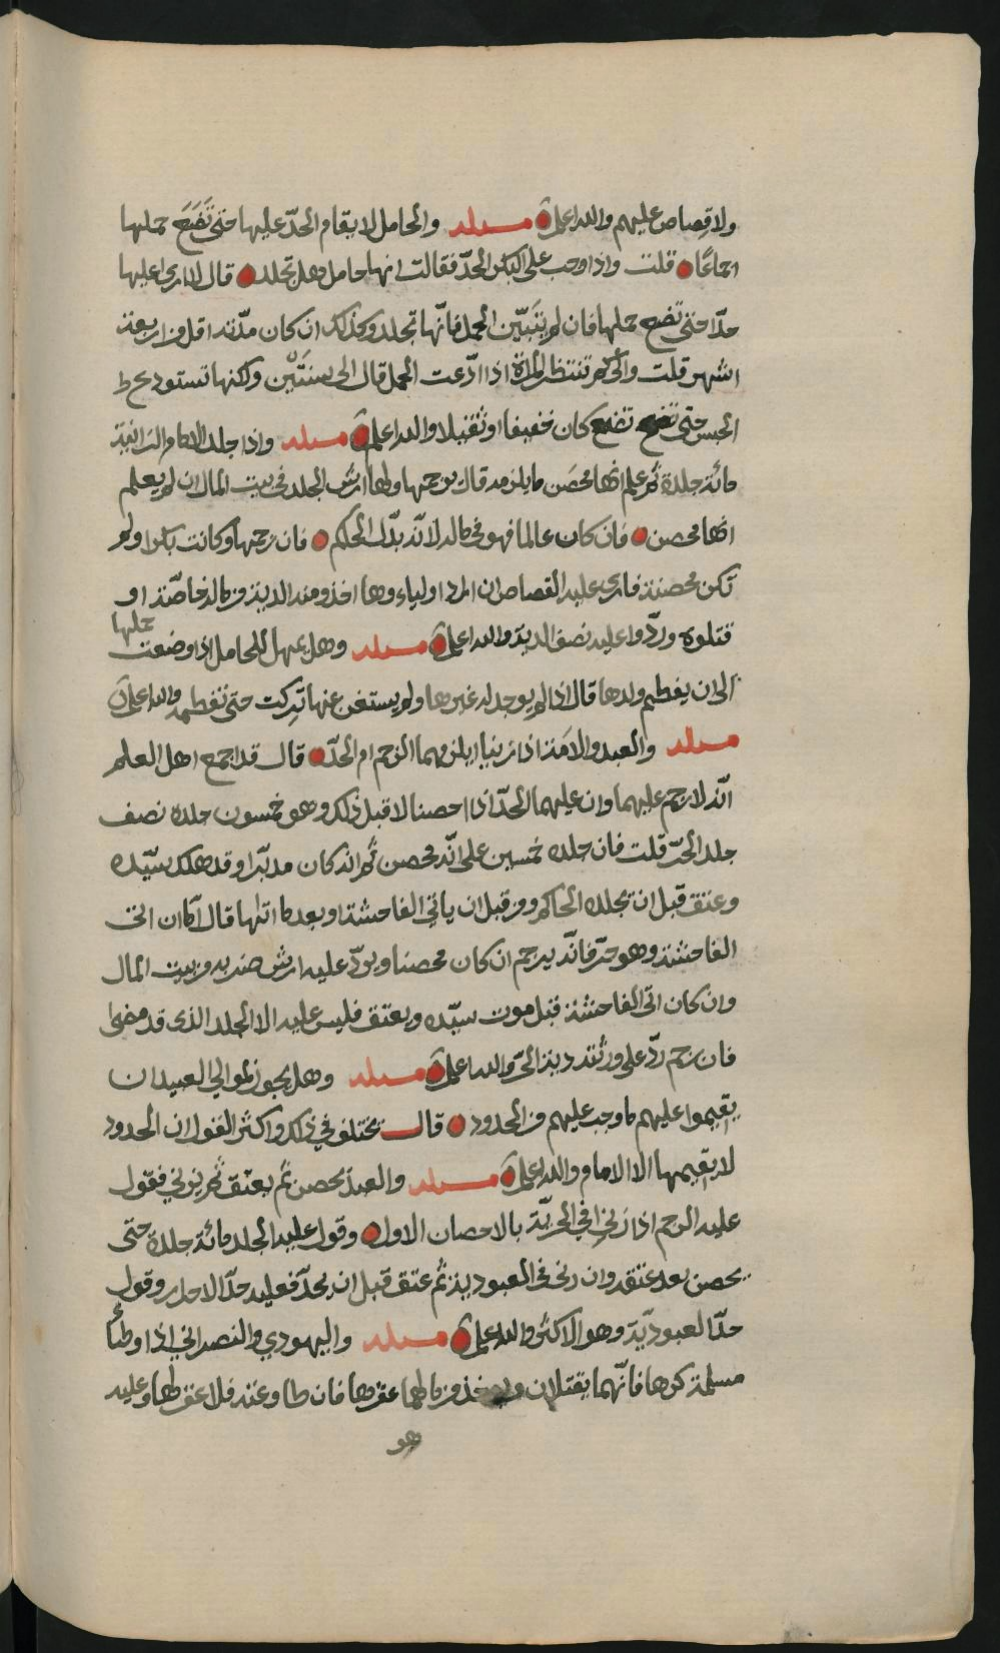 ولا قصاص عليهم والله اعلم مسئله والحامل لا يقام الحدّ عليها حتى تَضَعَ حملها
اجماعًا قلت واذا وجب على البكر الحدّ فقالت انها حامل هل تجلد قال لا ارى عليها
حدّا حتى تضع حملها فان لم يتَبيّن الحمل فانّها تجلد وكذلك ان كان مدّته اقل من اربعة
اشهر قلت والى كم تنتظر المراة اذا ادّعت الحمل قال الى سنَتَيْن ولكنها تستودع
الحبس حتى تضع كان خفيفا او ثقيلا والله اعلم مسئله واذا جلد الامام الزانية
مائة جلدة ثم علم انها محصَن ما يلزمه قال يرجمها ولها ارش الجلد في بيت المال ان لم يعلم
انها محصن فان كان عالما فهو في ماله لانّه بدّل الحكم فان رجمها وكانت بكرا ولم
تكن محصنة فارى عليه القصاص ان اراد اولياءوها اخذوا منه الدية من ماله خاصّة او
قتلوه وردّوا عليه نصف الدية والله اعلم مسئله وهل يمهل للحامل اذا وضعت حملها
الى ان يفطم ولدها قال اذا لم يوجد له غيرها ولم يستغن عنها تركت حتى تفطمه والله اعلم
مسئله والعبد والامَة اذا زنيا ايلزمهما الرجم ام الحدّ قال قد اجمع اهل العلم
انّه لا رجم عليهما وان عليهما الحدّ اذا احصنا لا قبل ذلك وهو خمسون جلدة نصف
جلد الحرّ قلت فان جلده خمسين على انّه محصن ثم انه كان مدبّرا وقد هلك سيّده
وعتق قبل ان يجلده الحاكم ومن قبل ان ياتي الفاحشة او بعد ما اتاها قال اما ان اتى
الفاحشة وهو حرّ فانّه يرجم ان كان محصنا ويردّ عليه ارش ضربه من بيت المال
وان كان اتى الفاحشة قبل موت سيّده ويعتق فليس عليه الا الجلد الذى قد مضى
فان رجم ردّ على ورثته دية الحرّ والله اعلم مسئله وهل يجوز لموالي العبيد ان
يقيموا عليهم ما وجب عليهم من الحدود قال يختلف في ذلك واكثر القول ان الحدود
لا يقيمها الا الامام والله اعلم مسئله والعبد يحصن ثم يعتق ثم يزني فقول
عليه الرجم اذا زنى في الحريّة بالاحصان الاول وقول عليه الجلد مائة جلدة حتى
يحصن بعد عتقه وان زنى في العبودية ثم عتق قبل ان يحدّ فعليه حدّ الاحرار وقول
حدّ العبوديّة وهو الاكثر والله اعلم مسئله واليهودي والنصراني اذا وطئا
مسلمة كرها فانّهما يقتلان من مالهما عقرها فان طاوعته فلا عقر لها وعليه
هو